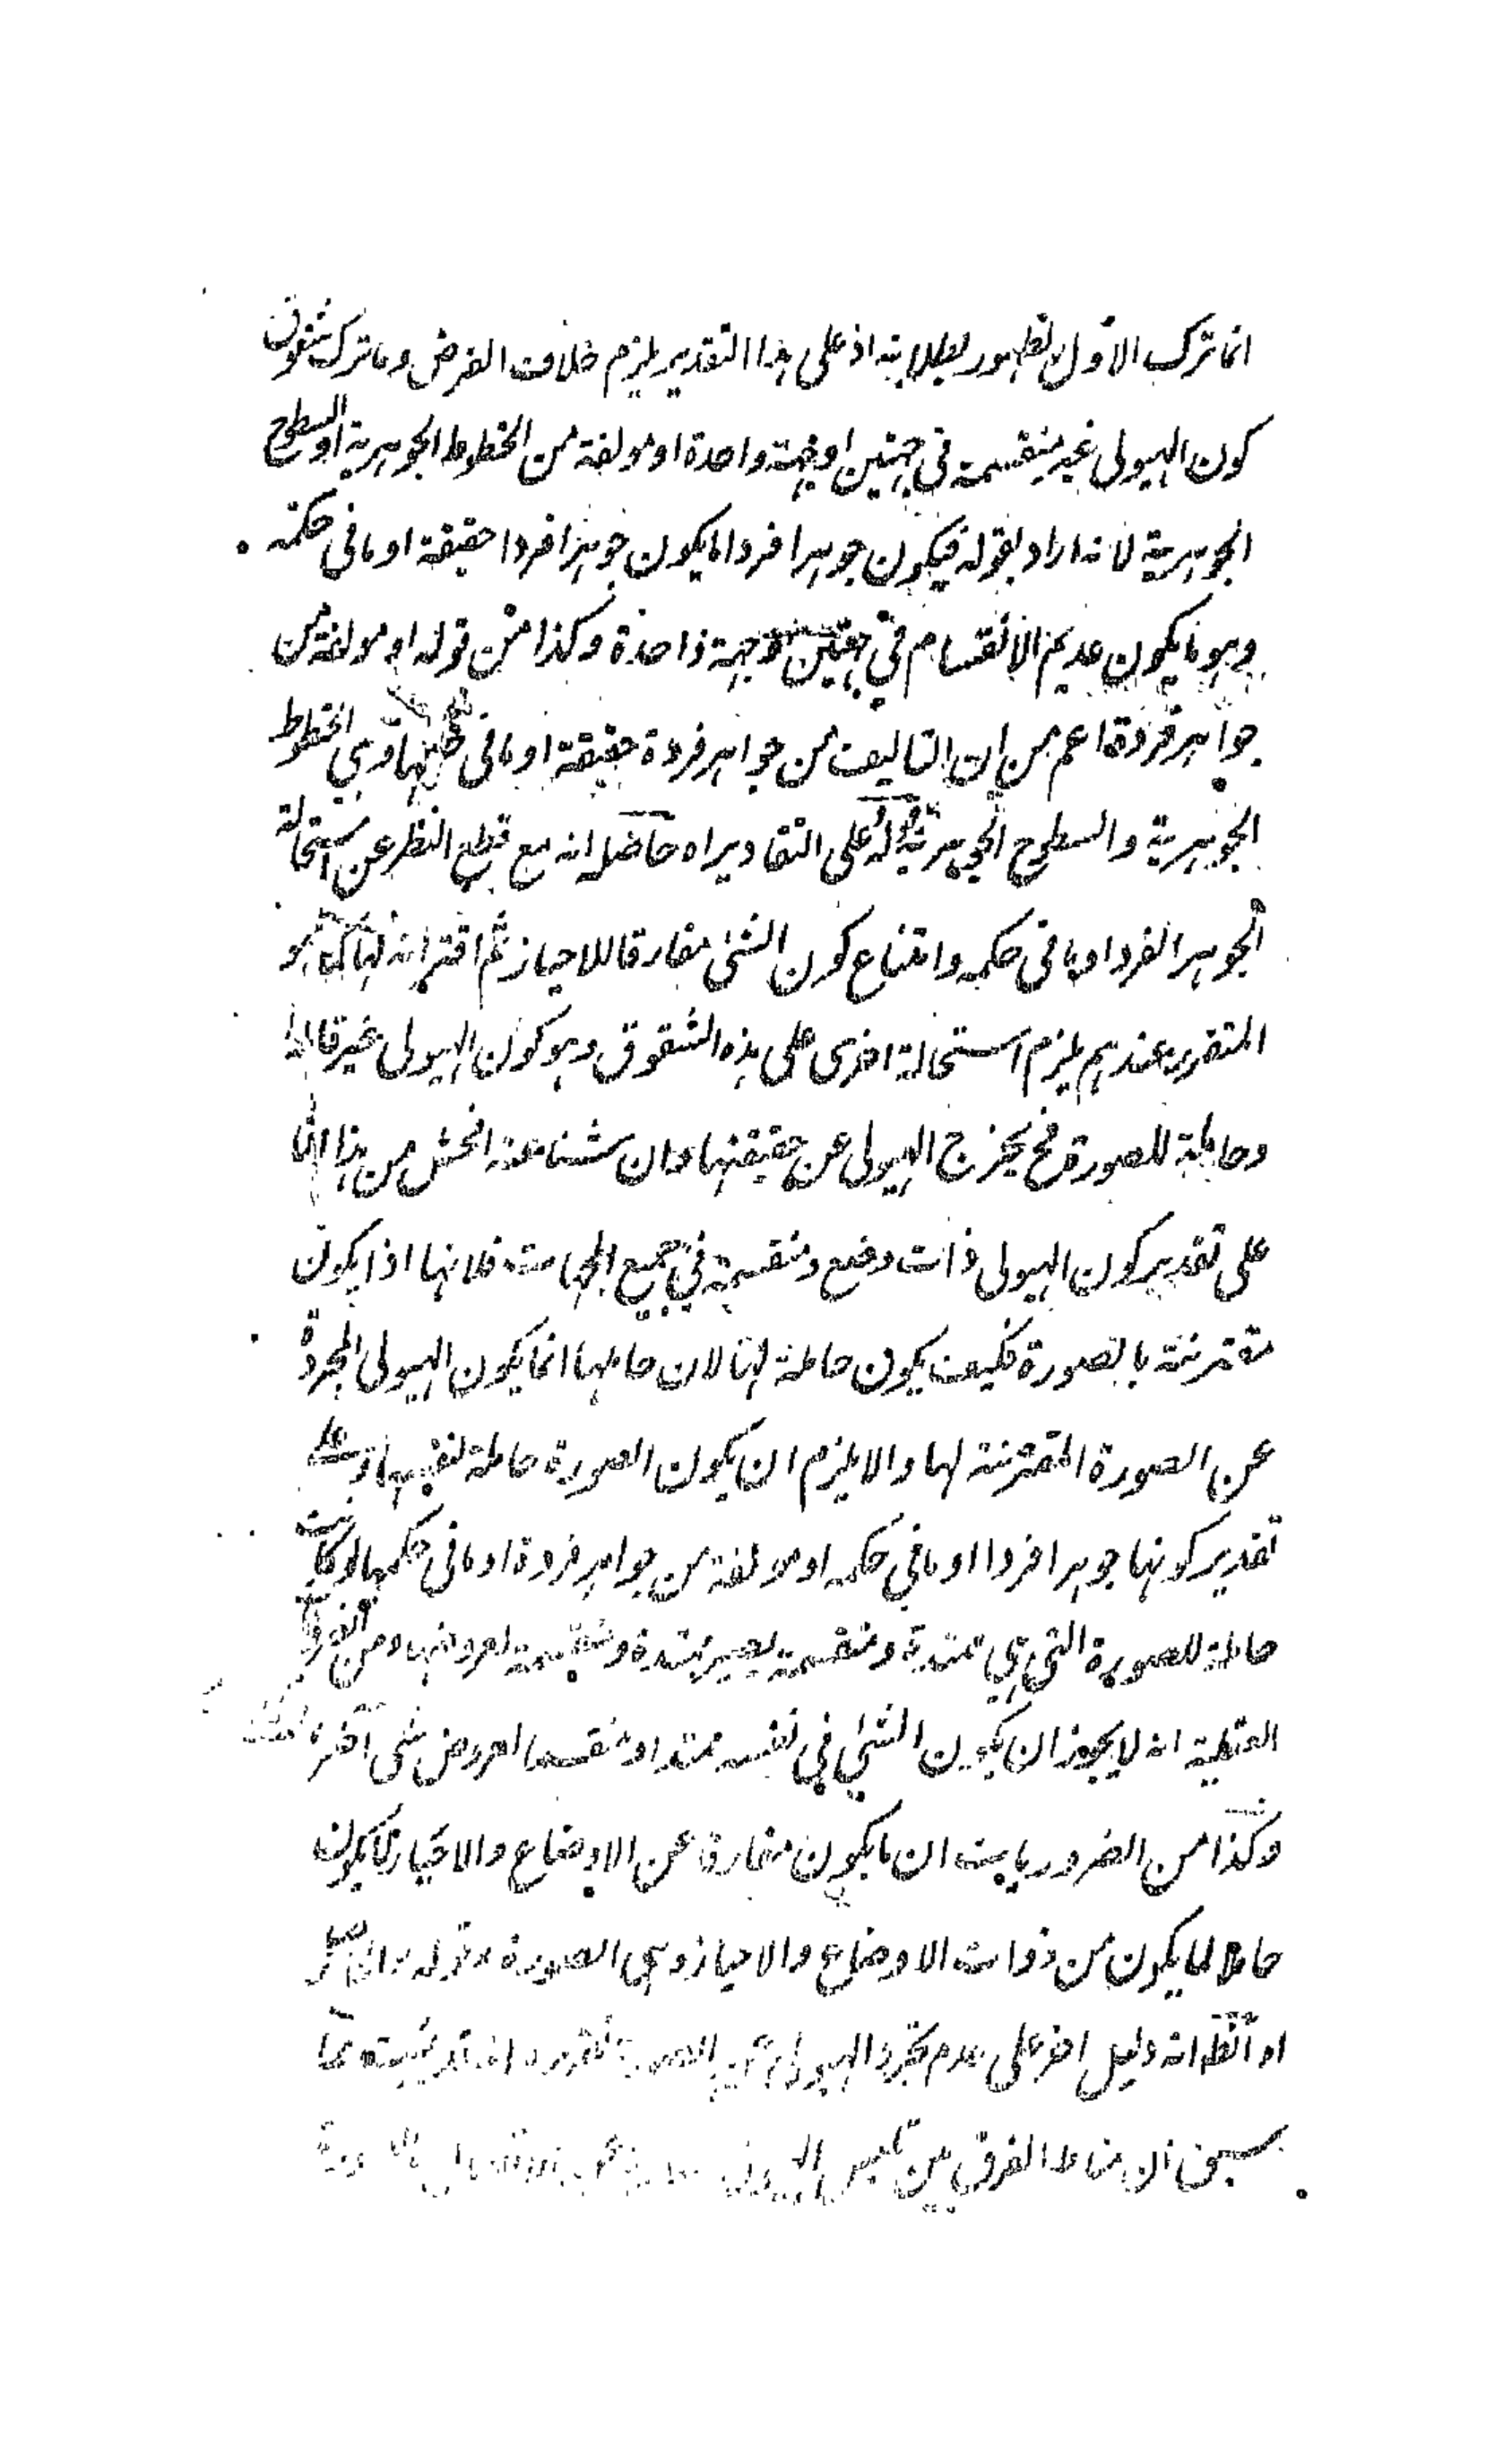 انما ترك الاول لظهور بطلانه اذ على هذا التقدير يلزم خلاف الفرض وما ترك شقوق
كون الهيولى غير منقسمة في جهتين او جهة واحدة او مولفة من الخطوط الجوهرية او السطوح
الجوهرية لانه اراد بقوله فيكون جوهرا فردا ما يكون جوهرا فردا حقيقة او ما في حكمه
وهو ما يكون عديم الانقسام في جهتين او جهة واحدة وكذا من قوله او مولفة من
جواهر فردة اعم من ان التاليف من جواهر فردة حقيقة او ما في حكمها وهي الخطوط
الجوهرية والسطوح الجوهرية قوله على التقادير اه حاصله انه مع قطع النظر عن استحالة
الجوهر الفرد او ما في حكمه وامتناع كون الشئ مفارقا للاحياز ثم اقترانه بها كما هو
المتقرر عندهم يلزم استحالة اخرى على هذه الشقوق وهو كون الهيولى غير قابلة
وحاملة للصورة فح يخرج الهيولى عن حقيقتها وان شناعة افحش من هذا اما
على تقدير كون الهيولى ذات وضع ومنقسمة في جميع الجهات فلانها اذا يكون
مقترنة بالصورة فكيف يكون حاملة لها لان حاملها انما يكون الهيولى المجردة
عن الصورة المقترنة لها والا يلزم ان يكون الصورة حاملة لنفسها وعلى
تقدير كونها جوهرا فردا او ما في حكمه او مولفة من جواهر فردة او ما في حكمها لو كانت
حاملة للصورة التي هي ممتدة ومنقسمة يصير ممتدة ومنقسمة لعروضها ومن
العقلية انه لا يجوز ان يكون الشئ في نفسه ممتدا ومنقسما لعروض شئ آخر
وكذا من الضروريات ان ما يكون مفارقا عن الاوضاع والاحياز لا يكون
حاملا لما يكون من ذوات الاوضاع والاحياز وهي الصورة قوله
اه الظ انه دليل اخر على عدم تجرد الهيولى عن الصورة تقريره انه قد ثبت مما
سبق ان مناط الفرق بين